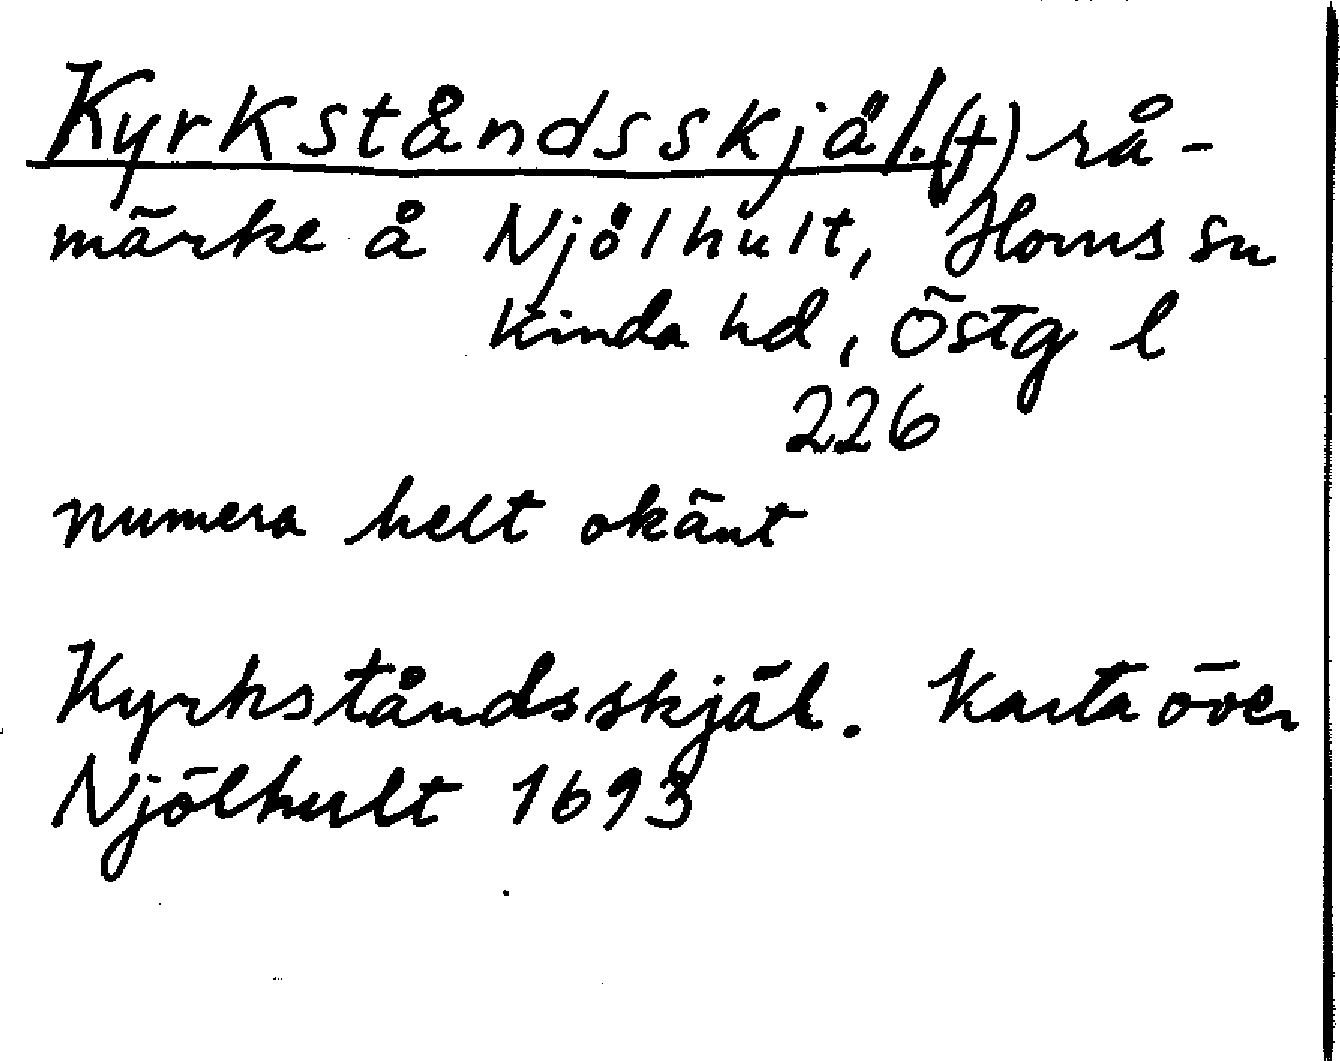 Kyrkståndsskjäl. (†) rå-
märke å Njölhult, Horns sn
Kinda hd, Östg l
226
numera helt okänt
Kyrkståndsskjäl. Karta över
Njölhult 1693